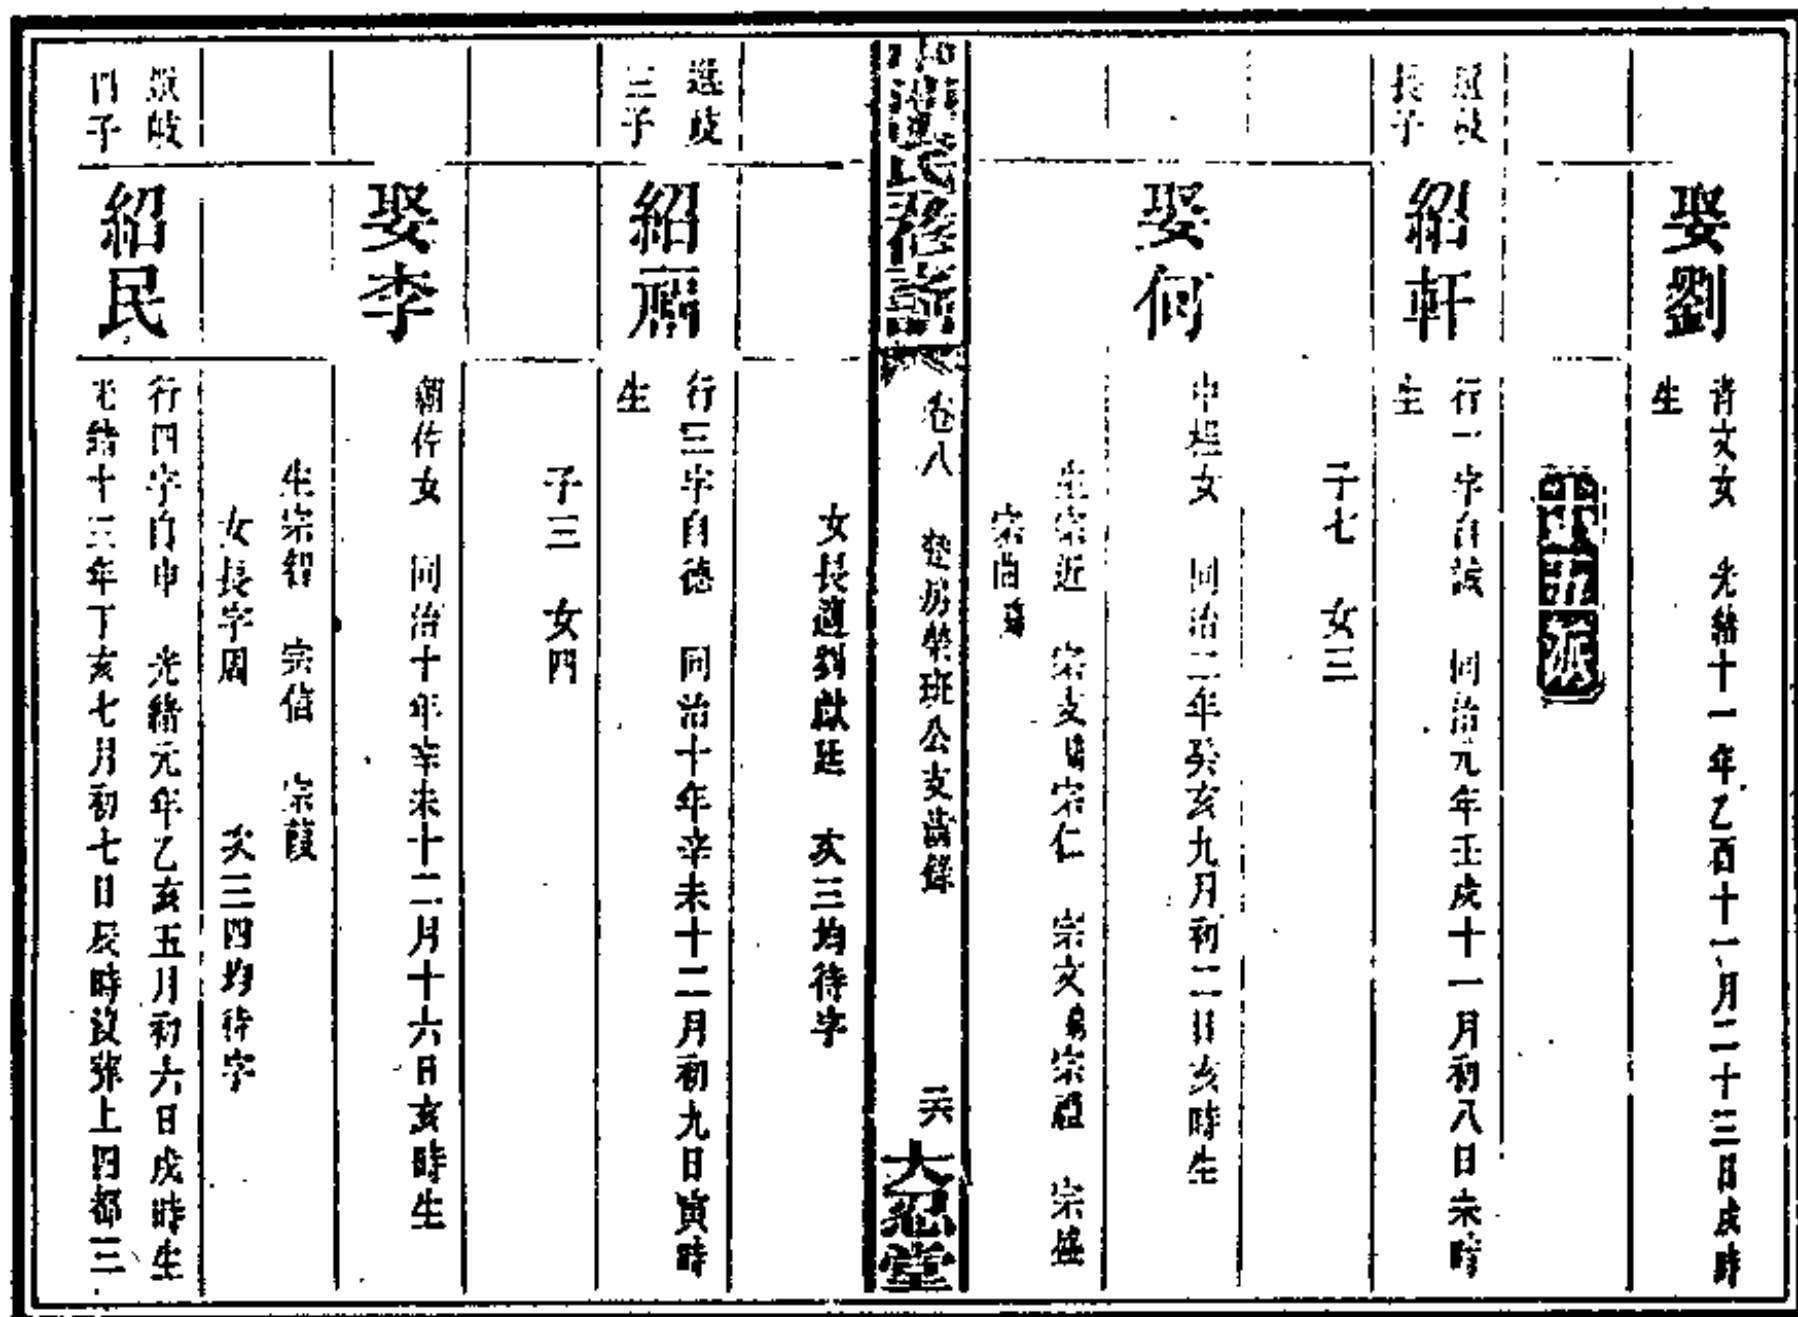 娶劉
青文女 光緒十一年乙酉十一月二十三日戌時
生
十五派
長子
紹軒
行一字自 同治元年壬戌十一月初八日未時
生
子七 女三
娶何
申桂女 同治二年癸亥九月初二日亥時生
生宗近 宗支 宗仁 宗文 宗禮 宗盛
宗尚
卷八 房榮班公支齒錄
二六
大忍堂
女長適劉獻廷 次三均待字
選歧
三子
紹
行三字自德 同治十年辛未十二月初九日寅時
生
子三 女四
娶李
朝佐女 同治十年辛未十二月十六日亥時生
生宗智 宗信 宗葭
女長字周 次三四均待字
歧
四子
紹民
行四字自申 光緒元年乙亥五月初六日戌時生
光緒十三年丁亥七月初七日辰時歿葬上四都三